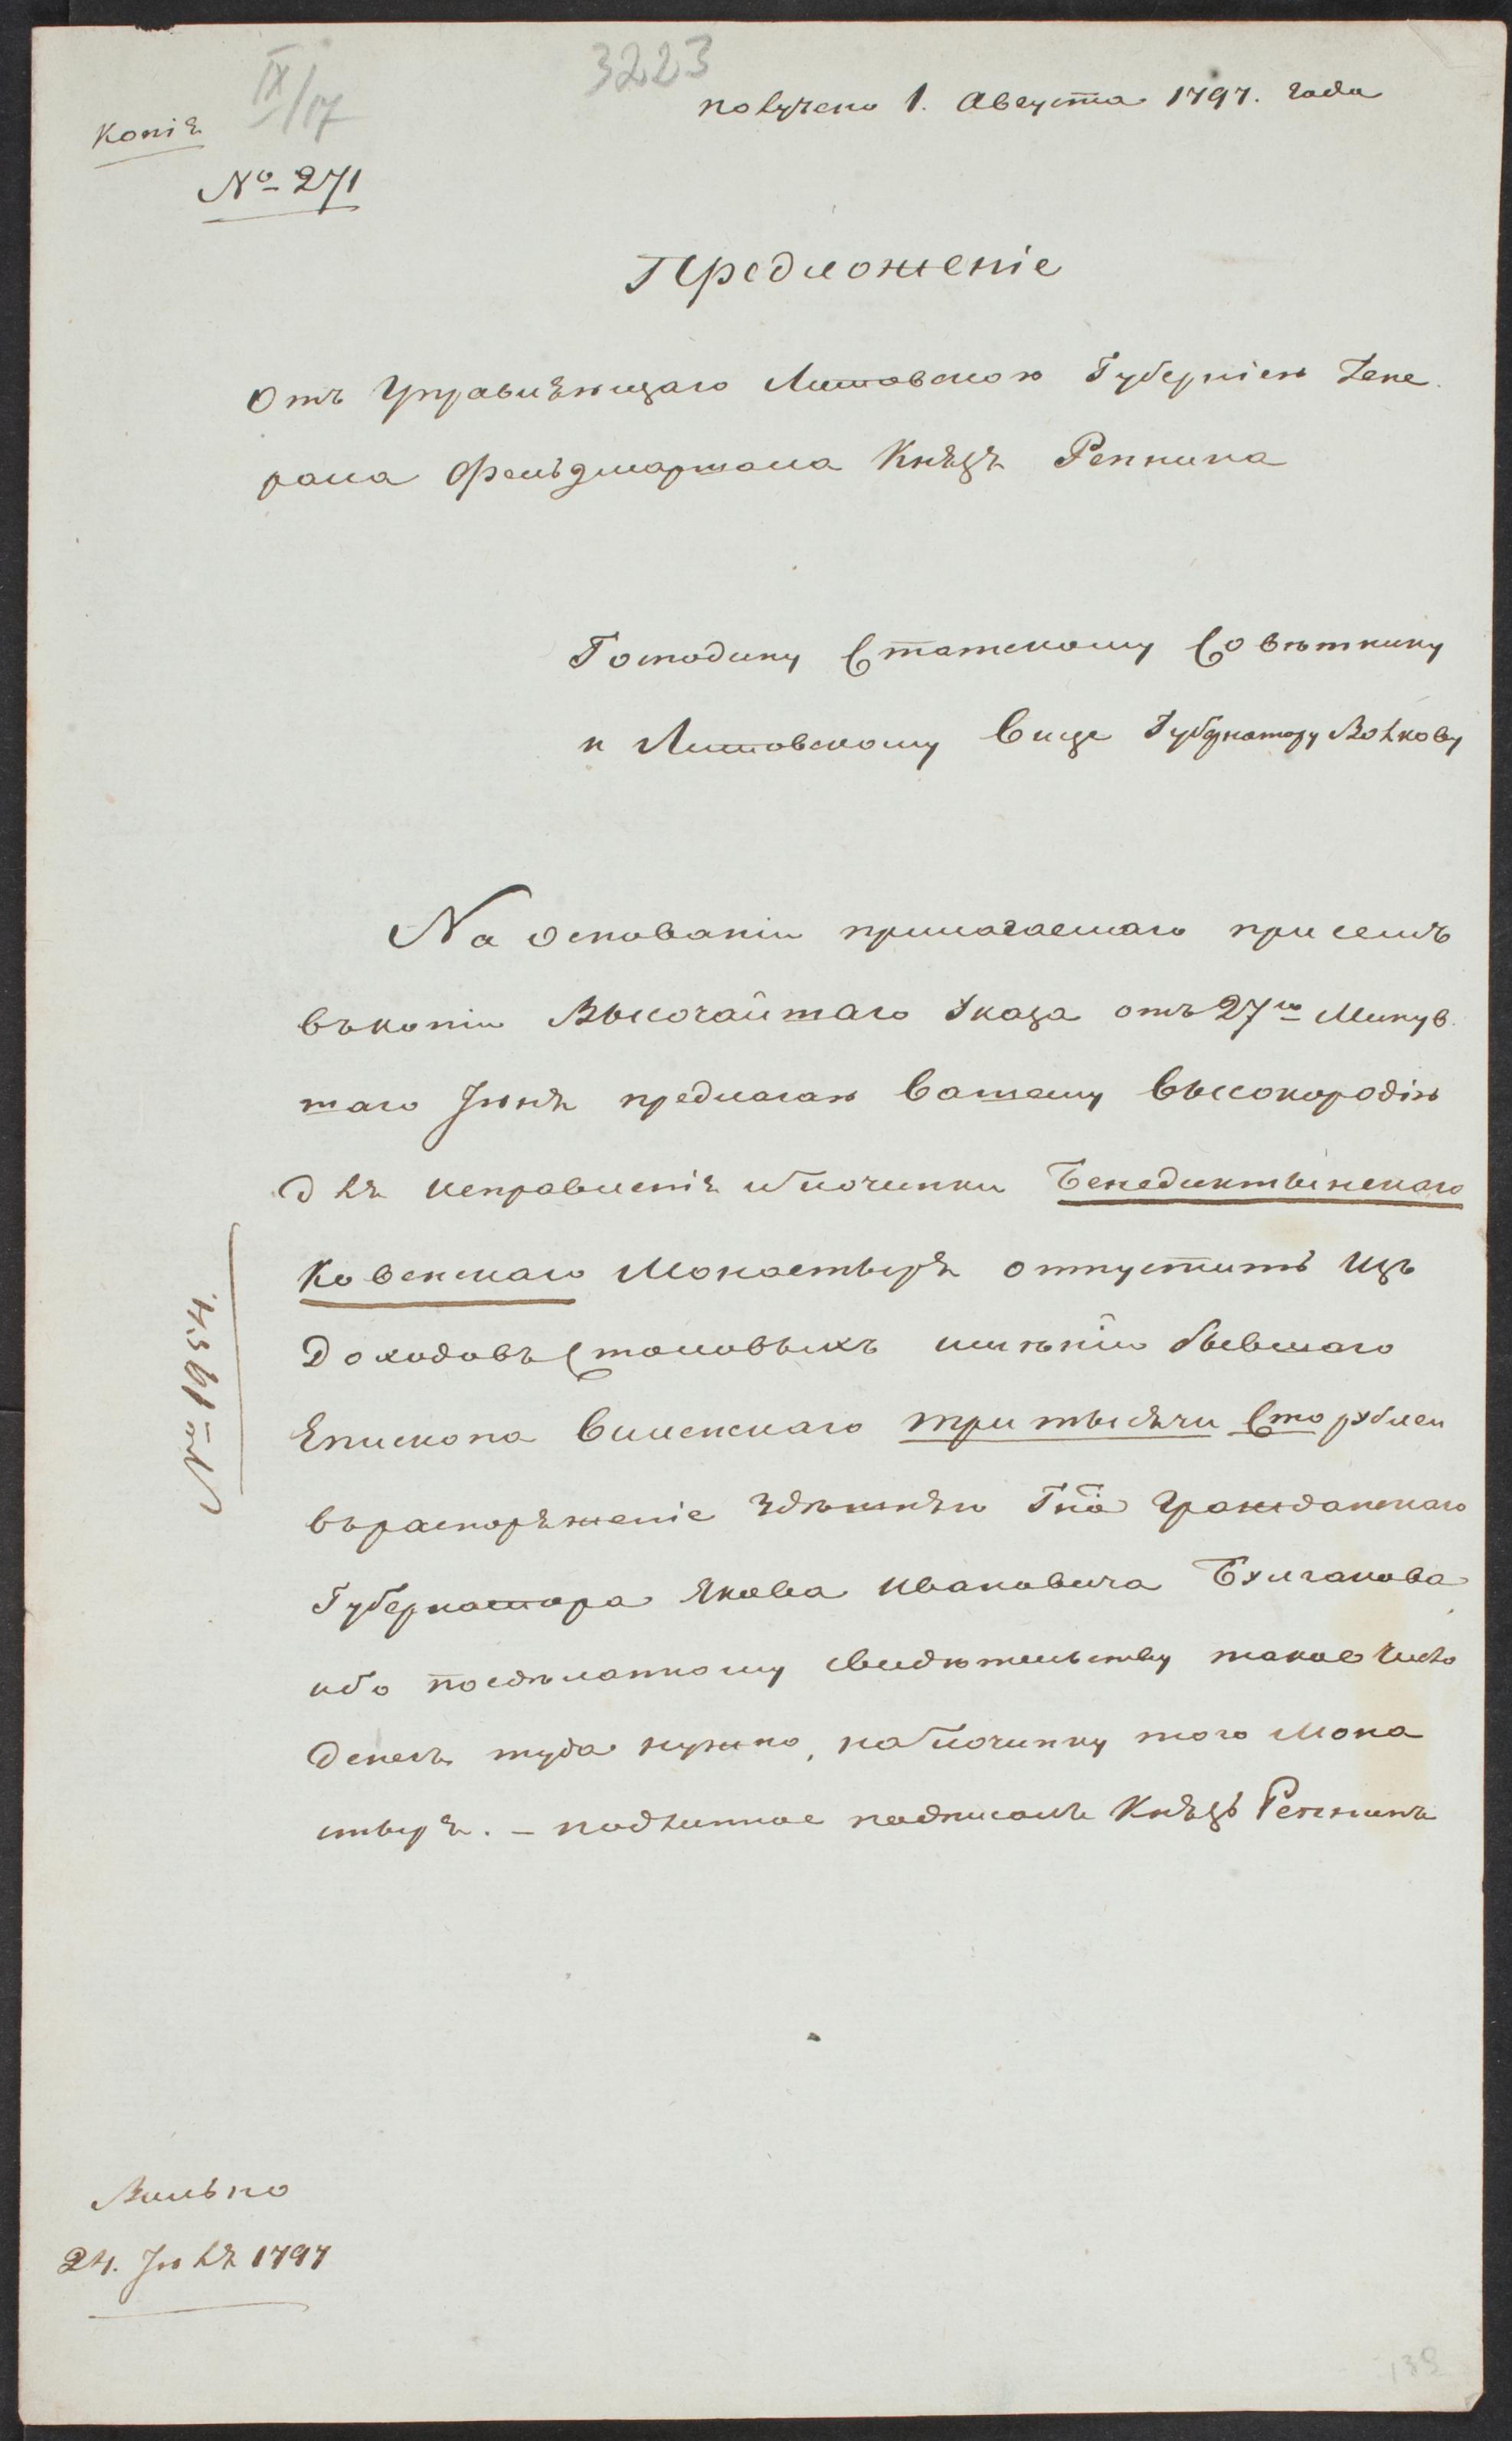 IX/17
3223
получено 1. Августа 1797. года
Копія
№ 271
Предложеніе
Отъ Управляющаго Литовскою Губерніею Гене
рала Фельдмаршала Князя Репнина
Господину Статскому Совѣтнику
и Литовскому Вице Губернатору Волкову
На основаніи прилагаемаго при семъ
въ копіи Высочайшаго Указа отъ 27го Минув
шаго Іюня предлагаю Вашему Высокородію
для исправленія и починки Бенедиктынскаго
Ковенскаго Монастыря отпустить изъ
доходовъ Столовыхъ имѣніи бывшаго
Епископа Виленскаго три тысячи Сто рублеи
въ распоряженіе здѣшняго Гпа Гражданскаго
Губернатора Якова Ивановича Булгакова
ибо по сдѣланному свидѣтельству такое число
денегъ туда нужно, на починку того Мона
стыря. – подлинное подписалъ Князь Репнинъ
№ 1954.
Вильно
24. Іюля 1797
139